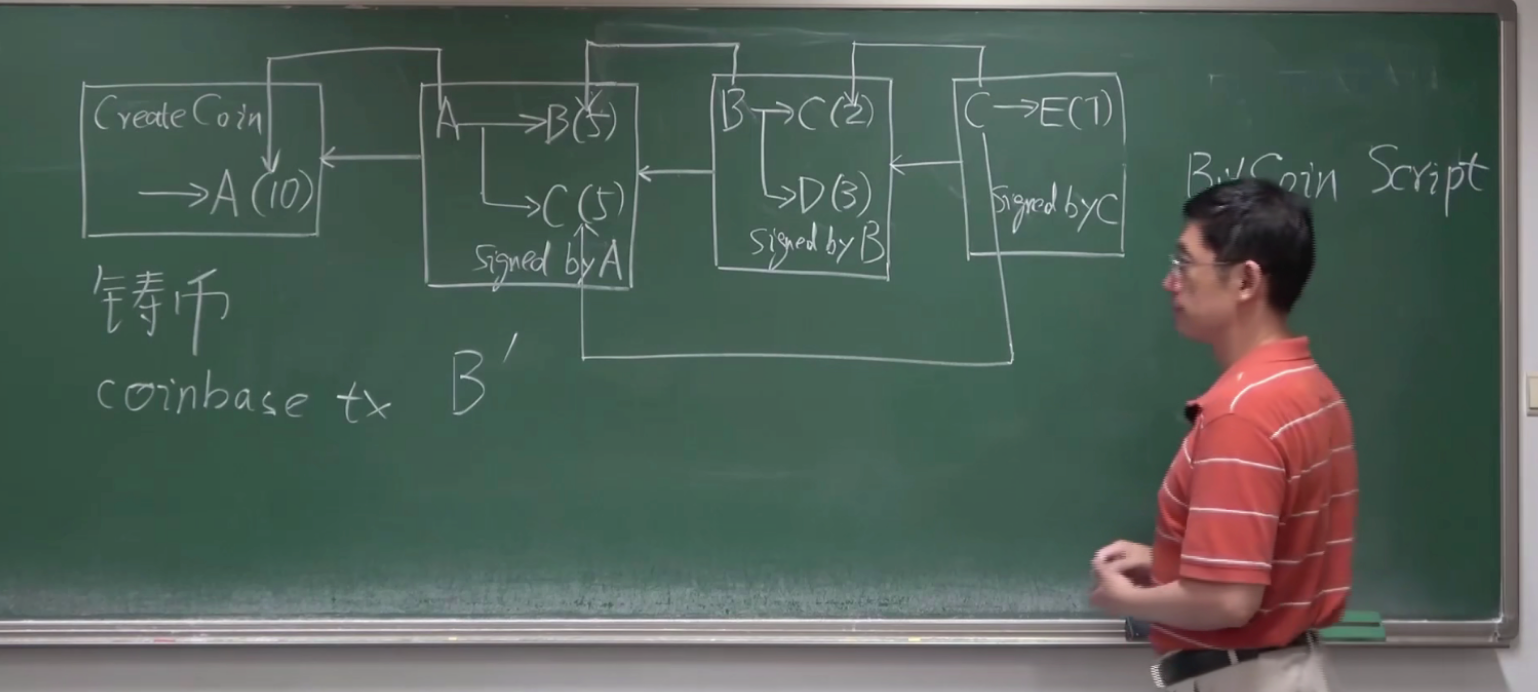 Create Coin
→A (10)
A→B(5)
→C (5)
signed by A
B→C(2)
→D(3)
signed by B
C→E(7)
signed by C
Script
铸币
coinbase tx
B'